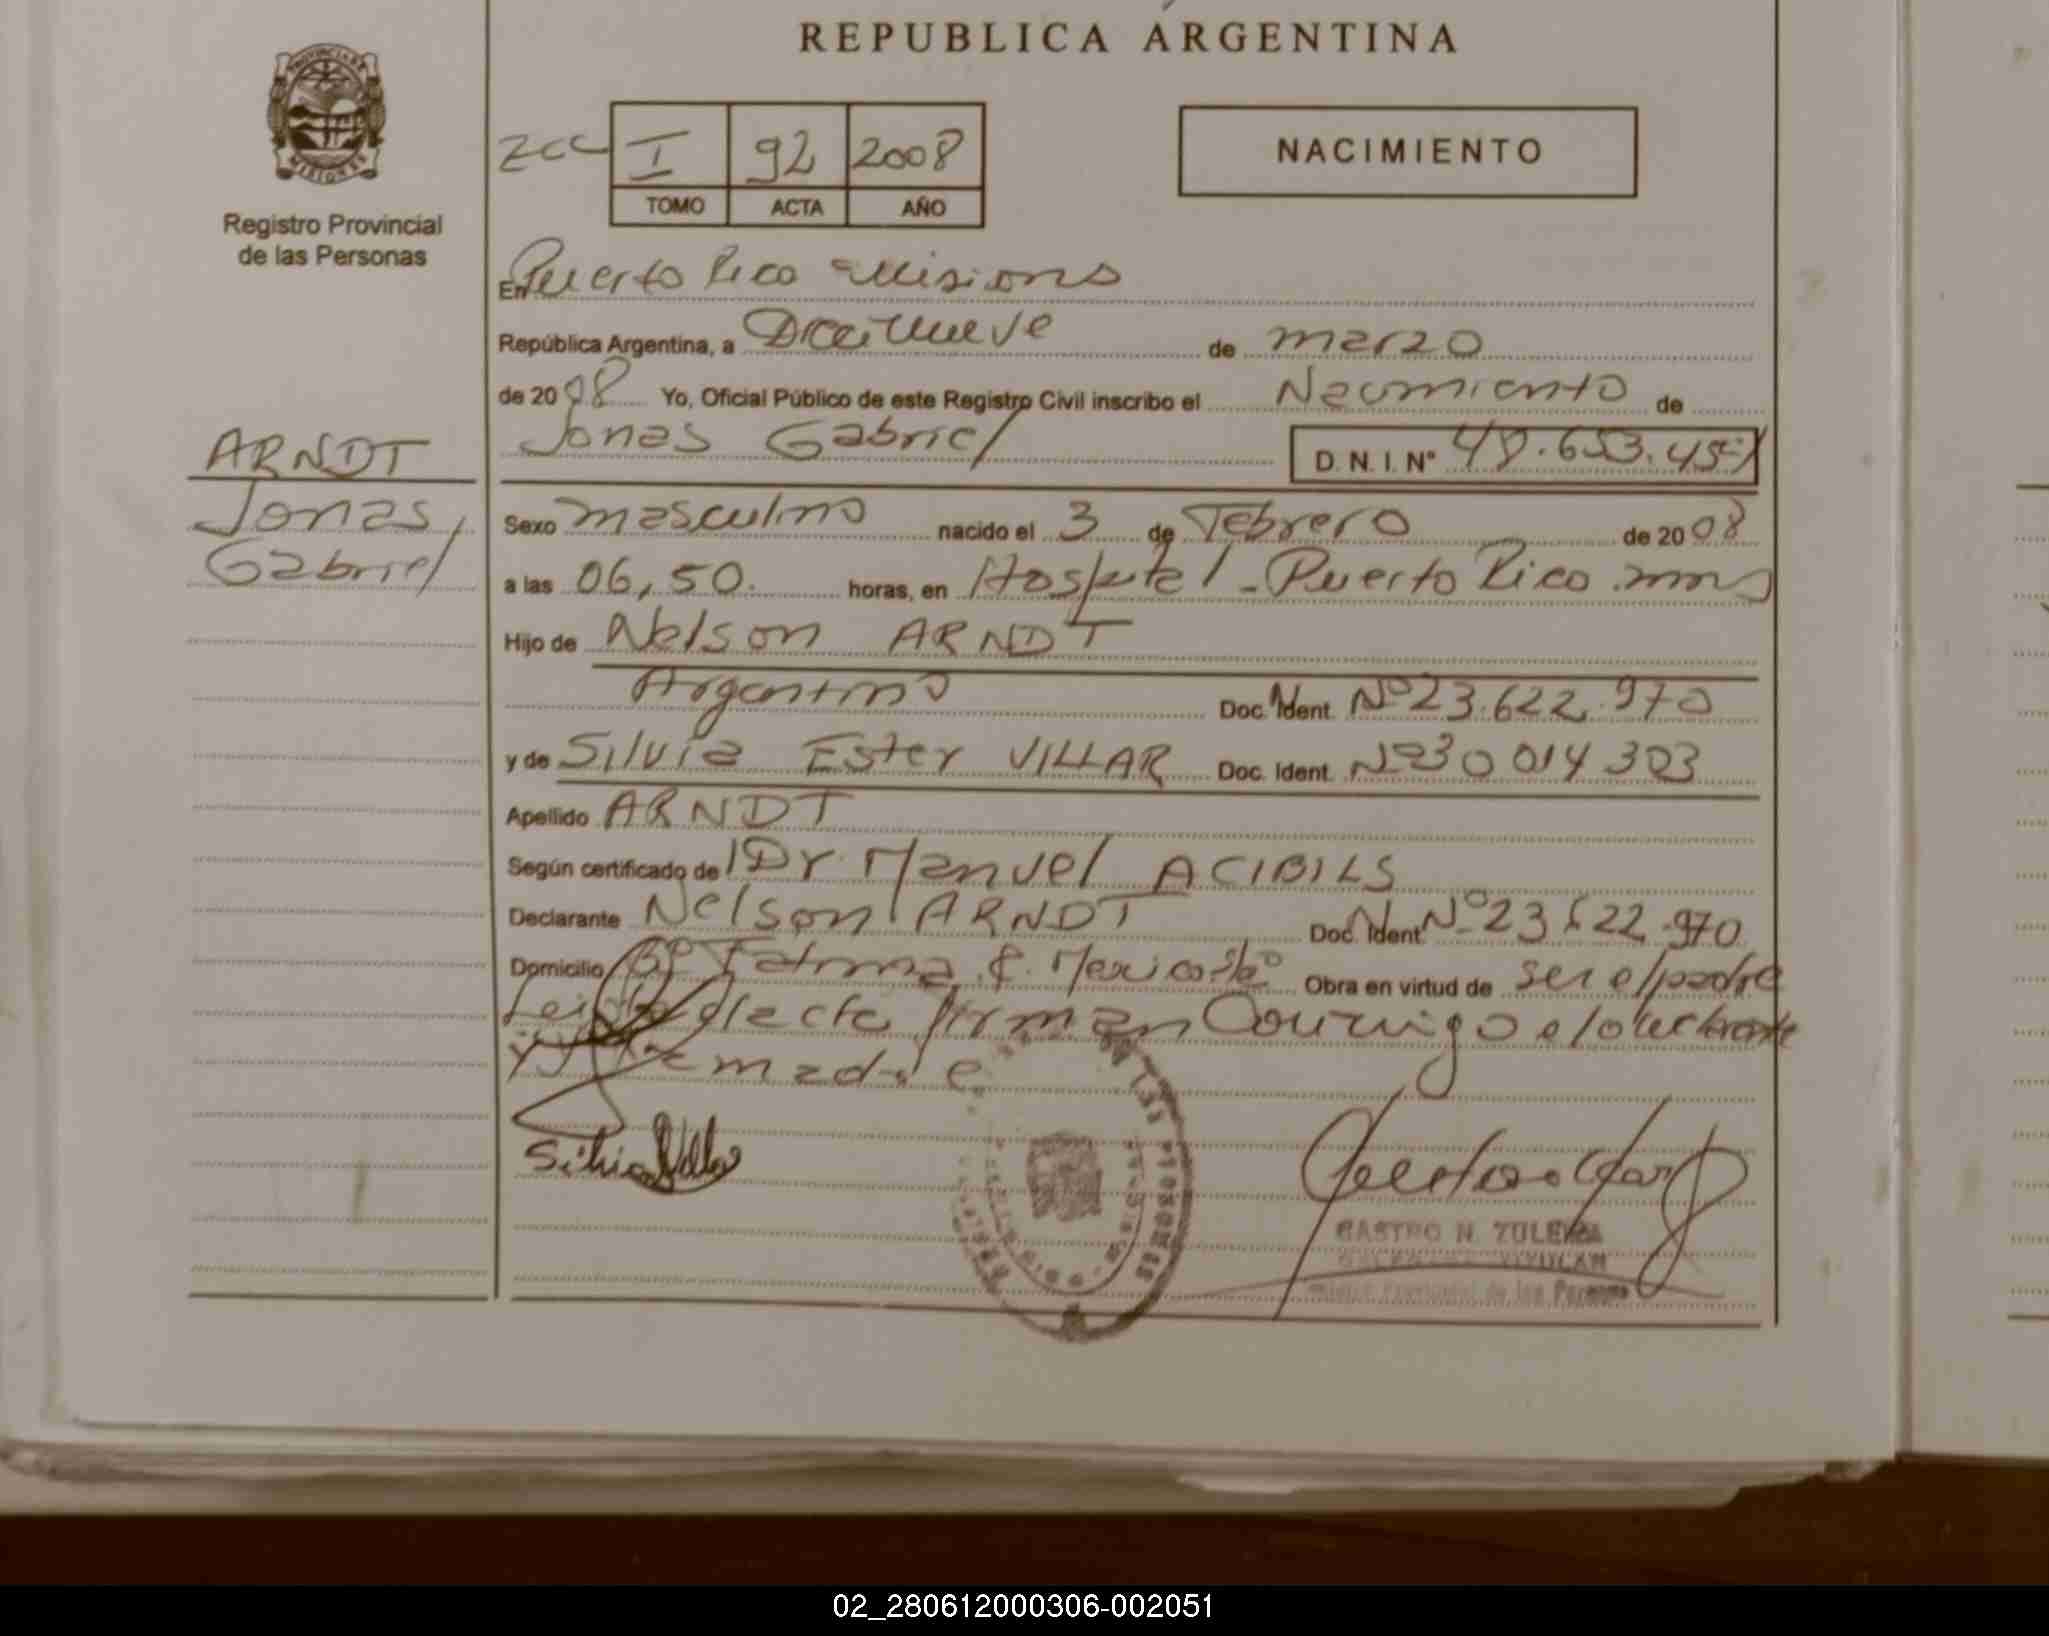 REPUBLICA ARGENTINA
PROVINCIA DE
MISIONES
Registro Provincial
de las Personas
I 92 2008
TOMO ACTA AÑO
NACIMIENTO
En Puerto Rico Misiones
República Argentina, a Diecinueve de marzo
de 2008 Yo, Oficial Público de este Registro Civil inscribo el Nacimiento de
Jonas Gabriel D. N. I. Nº
ARNDT
Jonas,
Gabriel
Sexo masculino nacido el 3 de Febrero de 2008
a las 06,50. horas, en Hospital - Puerto Rico
Hijo de Nelson ARNDT
Argentino Doc. Ident. Nº 23.622.970
y de Silvia Ester VILLAR Doc. Ident. Nº 30 014 303
Apellido ARNDT
Según certificado de Dr. Manuel ACIBILS
Declarante Nelson ARNDT Doc. Ident. Nº 23 622.970
Domicilio Bº Fatima Obra en virtud de ser el padre
Leida el acta firman Conmigo el declarante
y la madre
Silvia Villar
02_280612000306-002051